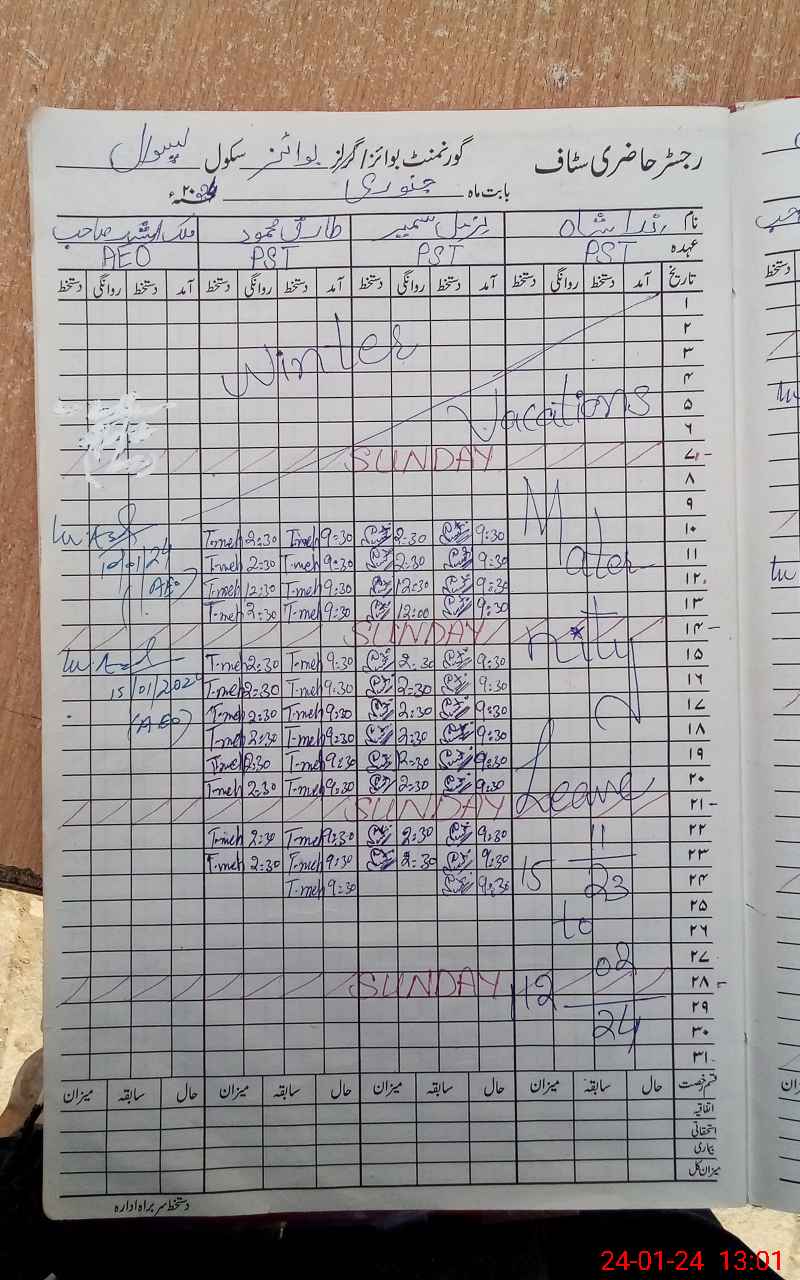 رجسٹر حاضری سٹاف گورنمنٹ بوائز / گرلز بوائز سکول
بابت ماہ جنوری ۲۰24ء
نام ندا شاہ طارق محمود ملک صاحب
عہدہ PST PST PST AEO
تاریخ آمد دستخط روانگی دستخط آمد دستخط روانگی دستخط آمد دستخط روانگی دستخط آمد دستخط روانگی دستخط
۱
۲
۳ Winter
۴
۵ Vacations
۶
۷ SUNDAY
۸
۹
۱۰ 9:30 2:30 9:30 T.meh 2:30 T.meh
۱۱ 9:30 2:30 9:30 T.meh 2:30 T.meh 10/01/24
۱۲ 9:30 12:30 9:30 T.meh 12:30 T.meh (AEO)
۱۳ 9:30 12:00 9:30 T.meh 2:30 T.meh
۱۴ SUNDAY
۱۵ 9:30 2:30 9:30 T.meh 2:30 T.meh
۱۶ 9:30 2:30 9:30 T.meh 2:30 T.meh 15/01/2024
۱۷ 9:30 2:30 9:30 T.meh 2:30 T.meh (AEO)
۱۸ 9:30 2:30 9:30 T.meh 2:30 T.meh
۱۹ 9:30 2:30 9:30 T.meh 2:30 T.meh
۲۰ 9:30 2:30 9:30 T.meh 2:30 T.meh
۲۱ SUNDAY
۲۲ 9:30 2:30 9:30 T.meh 2:30 T.meh
۲۳ 9:30 2:30 9:30 T.meh 2:30 T.meh
۲۴ 9:30 9:30 T.meh
۲۵
۲۶
۲۷
۲۸ SUNDAY
۲۹
۳۰
۳۱
Maternity
Leave
15 11 23
to
112 02 24
قسم رخصت حال سابقہ میزان حال سابقہ میزان حال سابقہ میزان حال سابقہ میزان
اتفاقیہ
استحقاقی
بیماری
میزان کل
دستخط سربراہ ادارہ
24-01-24 13:01